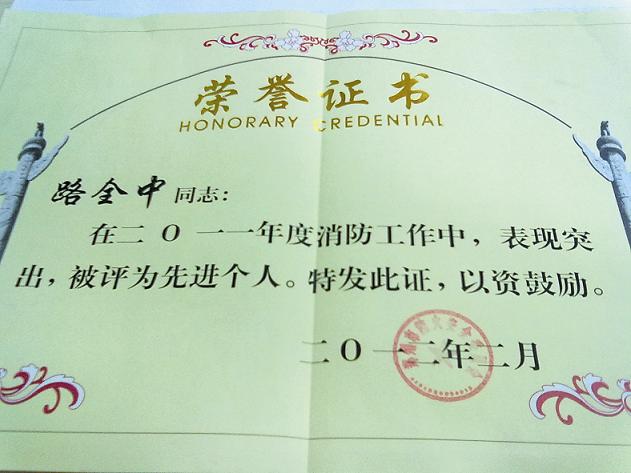 荣誉证书
HONORARY CREDENTIAL
路全中同志：
在二０一一年度消防工作中，表现突
出，被评为先进个人。特发此证，以资鼓励。
二０一二年二月